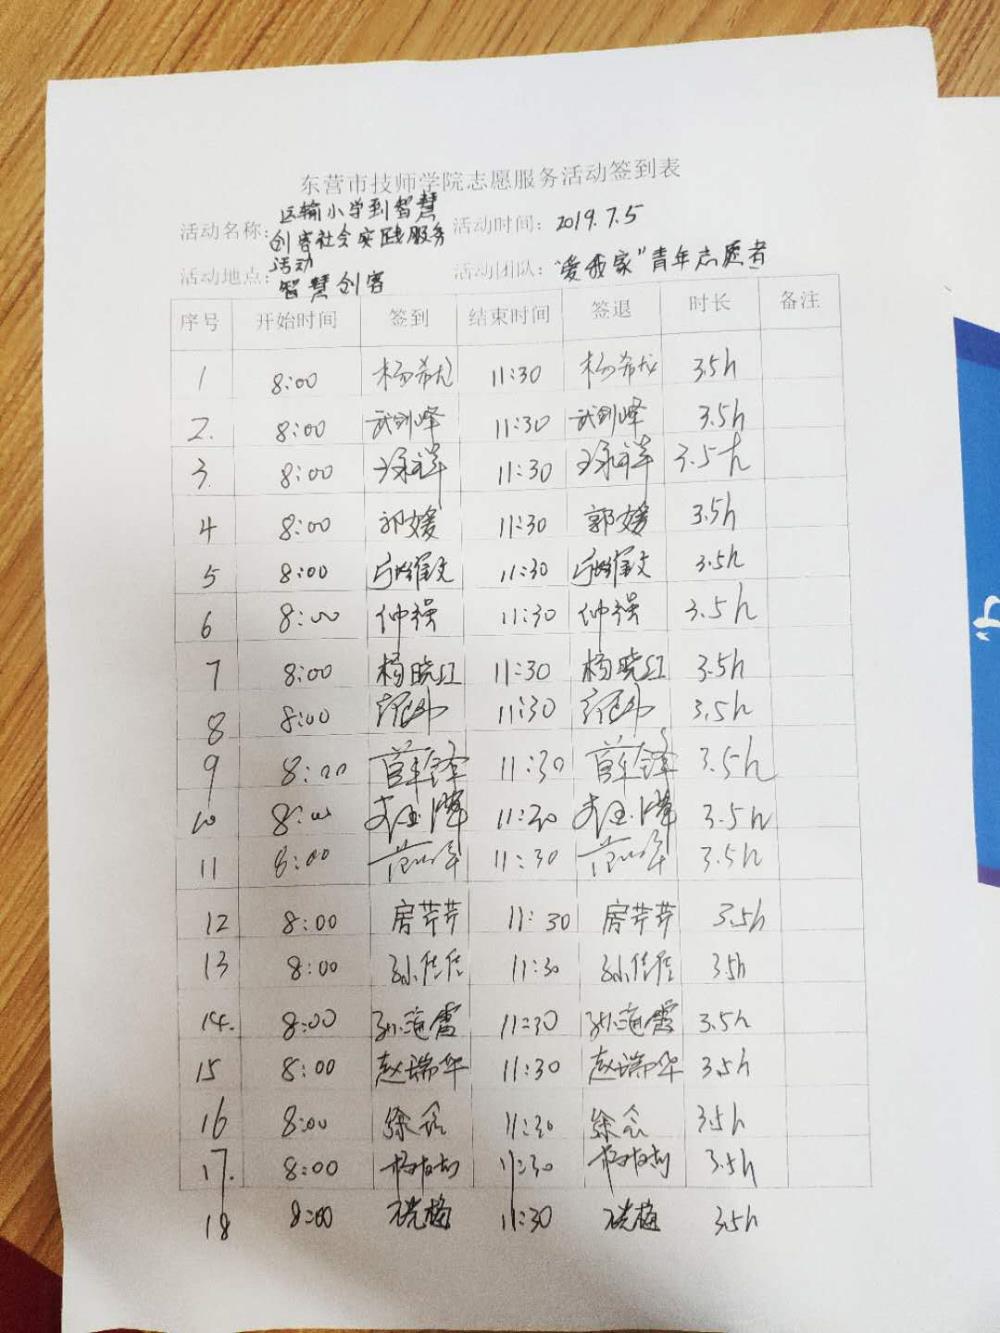 东营市技师学院志愿服务活动签到表
活动名称：运输小学到智慧
创客社会实践服务
活动
活动时间：2019.7.5
活动地点：智慧创客
活动团队："爱我家"青年志愿者
序号 开始时间 签到 结束时间 签退 时长 备注
1 8:00 杨希龙 11:30 杨希龙 3.5h
2. 8:00 武剑峰 11:30 武剑峰 3.5h
3. 8:00 11:30 3.5h
4 8:00 郭媛 11:30 郭媛 3.5h
5 8:00 11:30 3.5h
6 8:00 仲强 11:30 仲强 3.5h
7 8:00 杨晓红 11:30 杨晓红 3.5h
8 8:00 11:30 3.5h
9 8:00 薛锋 11:30 薛锋 3.5h
10 8:00 11:30 3.5h
11 8:00 11:30 3.5h
12 8:00 房芹芹 11:30 房芹芹 3.5h
13 8:00 孙佳佳 11:30 孙佳佳 3.5h
14. 8:00 孙海霞 11:30 孙海霞 3.5h
15 8:00 赵瑞华 11:30 赵瑞华 3.5h
16 8:00 徐念 11:30 徐念 3.5h
17. 8:00 11:30 3.5h
18 8:00 11:30 3.5h